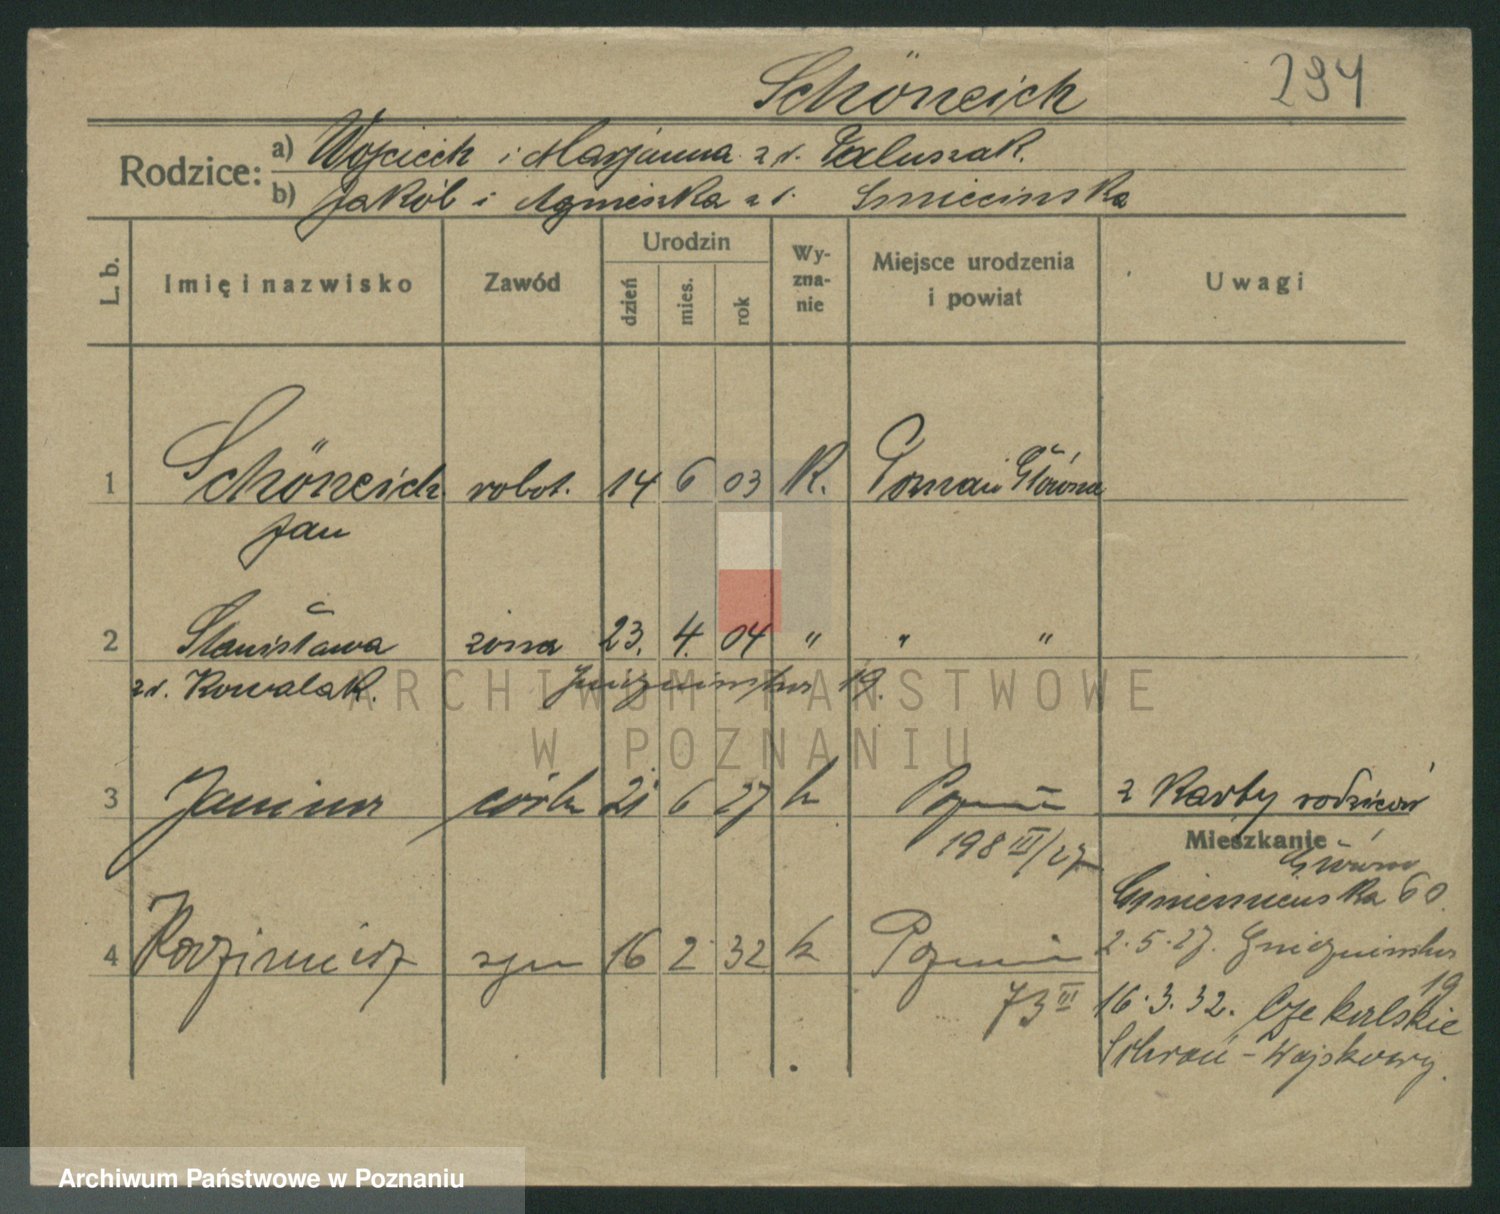 Schöneich 294
Rodzice: a) Wojciech i Marjanna z d. Galuszak.
b) Jakób i Agnieszka z d. Śmiecińska
L. b. Imię i nazwisko Zawód Urodzin dzień mies. rok Wyznanie Miejsce urodzenia i powiat Uwagi
1 Schöneich robot. 14 6 03 K. Poznań Główna
Jan
2 Stanisława żona 23. 4. 04 " " "
z d. Kowalak. Gnieźnieńska 19.
3 Janina córka 21 6 27 k Poznań z Karty rodziców
198 III/27 Mieszkanie
Główna
Gnieźnieńska 60.
4 Kazimierz syn 16 2 32 k Poznań 2.5.27. Gnieźnieńska
19
73 III 16.3.32. Czekalskie
Schron-Wojskowy.
ARCHIWUM PAŃSTWOWE
W POZNANIU
Archiwum Państwowe w Poznaniu